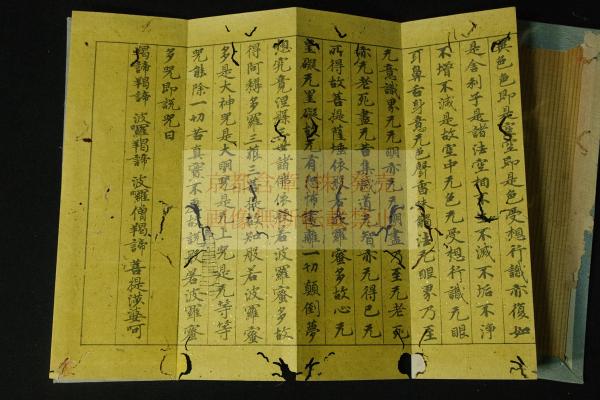 異色色即是空空即是色受想行識亦復如
是舍利子是諸法空相不生不滅不垢不淨
不增不滅是故空中无色无受想行識无眼
耳鼻舌身意无色聲香味觸法无眼界乃至
无意識界无无明亦无无明盡乃至无老死
亦无老死盡无苦集滅道无智亦无得已无
所得故菩提薩埵依般若波羅蜜多故心无
罣礙无罣礙故无有恐怖遠離一切顛倒夢
想究竟涅槃三世諸佛依般若波羅蜜多故
得阿耨多羅三藐三菩提故知般若波羅蜜
多是大神咒是大明咒是无上咒是无等等
咒能除一切苦真實不虛故說般若波羅蜜
多咒即說咒曰
揭諦羯諦 波羅羯諦 波羅僧羯諦 菩提薩婆呵
画像無断転載禁止